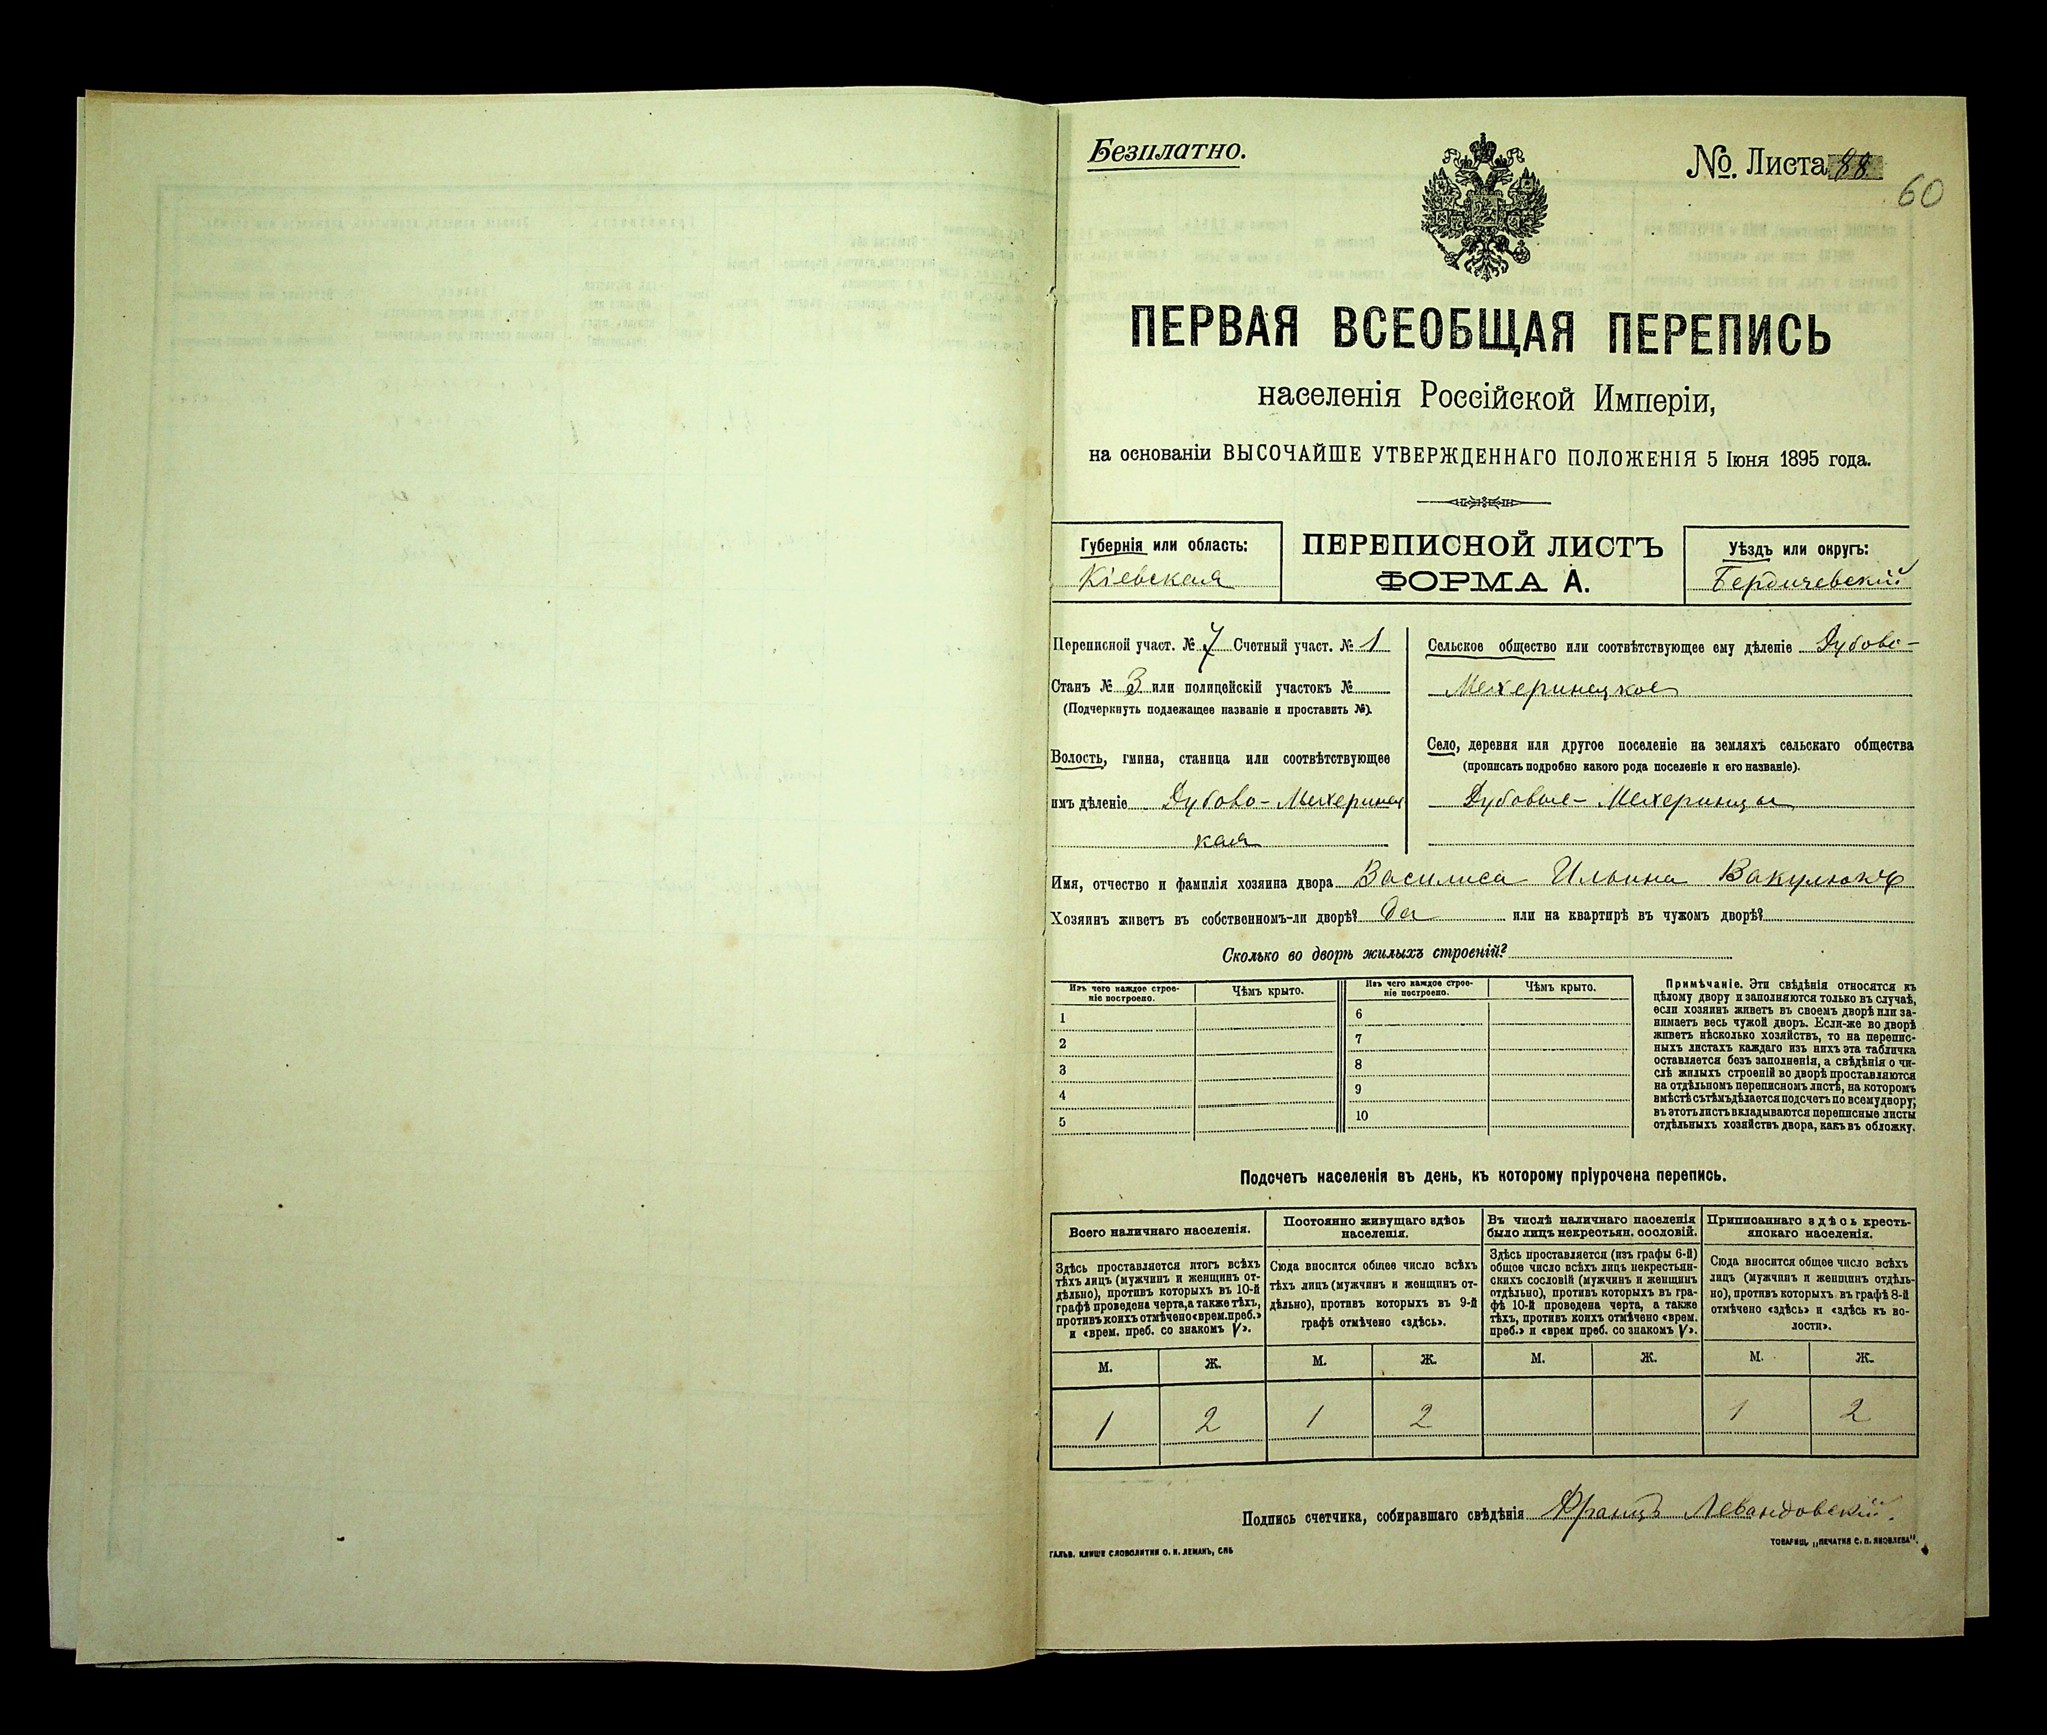 Безплатно.
№. Листа 88.
60
ПЕРВАЯ ВСЕОБЩАЯ ПЕРЕПИСЬ
населенія Россійской Имперіи,
на основаніи ВЫСОЧАЙШЕ УТВЕРЖДЕННАГО ПОЛОЖЕНІЯ 5 Іюня 1895 года.
Губернія или область:
Кіевская
ПЕРЕПИСНОЙ ЛИСТЪ
ФОРМА А.
Уѣздъ или округъ:
Бердичевскій
Переписной участ. № 7 Счетный участ. № 1
Станъ № 3 или полицейскій участокъ №
(Подчеркнуть подлежащее названіе и проставить №).
Волость, гмина, станица или соотвѣтствующее
имъ дѣленіе Дубово-Махеринец
кая
Сельское общество или соотвѣтствующее ему дѣленіе Дубово-
Махеринецкое
Село, деревня или другое поселеніе на земляхъ сельскаго общества
(прописать подробно какого рода поселеніе и его названіе).
Дубовые-Махеринцы
Имя, отчество и фамилія хозяина двора Василиса Ильина Вакулюкъ
Хозяинъ живетъ въ собственномъ-ли дворѣ? Да или на квартирѣ въ чужомъ дворѣ?
Сколько во дворѣ жилыхъ строеній?
Изъ чего каждое строе-
ніе построено.
Чѣмъ крыто.
Изъ чего каждое строе-
ніе построено.
Чѣмъ крыто.
1
2
3
4
5
6
7
8
9
10
Примѣчаніе. Эти свѣдѣнія относятся къ
цѣлому двору и заполняются только въ случаѣ,
если хозяинъ живетъ въ своемъ дворѣ или за-
нимаетъ весь чужой дворъ. Если-же во дворѣ
живетъ нѣсколько хозяйствъ, то на перепис-
ныхъ листахъ каждаго изъ нихъ эта табличка
оставляется безъ заполненія, а свѣдѣнія о чи-
слѣ жилыхъ строеній во дворѣ проставляются
на отдѣльномъ переписномъ листѣ, на которомъ
вмѣстѣ съ тѣмъ дѣлается подсчетъ по всему двору;
въ этотъ листъ вкладываются переписные листы
отдѣльныхъ хозяйствъ двора, какъ въ обложку.
Подсчетъ населенія въ день, къ которому пріурочена перепись.
Всего наличнаго населенія.
Здѣсь проставляется итогъ всѣхъ
тѣхъ лицъ (мужчинъ и женщинъ от-
дѣльно), противъ которыхъ въ 10-й
графѣ проведена черта, а также тѣхъ,
противъ коихъ отмѣчено «врем. преб.»
и «врем. преб. со знакомъ V».
Постоянно живущаго здѣсь
населенія.
Сюда вносится общее число всѣхъ
тѣхъ лицъ (мужчинъ и женщинъ от-
дѣльно), противъ которыхъ въ 9-й
графѣ отмѣчено «здѣсь».
Въ числѣ наличнаго населенія
было лицъ некрестьян. сословій.
Здѣсь проставляется (изъ графы 6-й)
общее число всѣхъ лицъ некрестьян-
скихъ сословій (мужчинъ и женщинъ
отдѣльно), противъ которыхъ въ гра-
фѣ 10-й проведена черта, а также
тѣхъ, противъ коихъ отмѣчено «врем.
преб.» и «врем преб. со знакомъ V».
Приписаннаго здѣсь кресть-
янскаго населенія.
Сюда вносится общее число всѣхъ
лицъ (мужчинъ и женщинъ отдѣль-
но), противъ которыхъ въ графѣ 8-й
отмѣчено «здѣсь» и «здѣсь къ во-
лости».
М. Ж. М. Ж. М. Ж. М. Ж.
1 2 1 2 1 2
Подпись счетчика, собиравшаго свѣдѣнія Францъ Левандовскій.
ГАЛЬВ. КЛИШЕ СЛОВОЛИТНИ О. И. ЛЕМАНЪ, СПБ
ТОВАРИЩ. „ПЕЧАТНЯ С. П. ЯКОВЛЕВА".